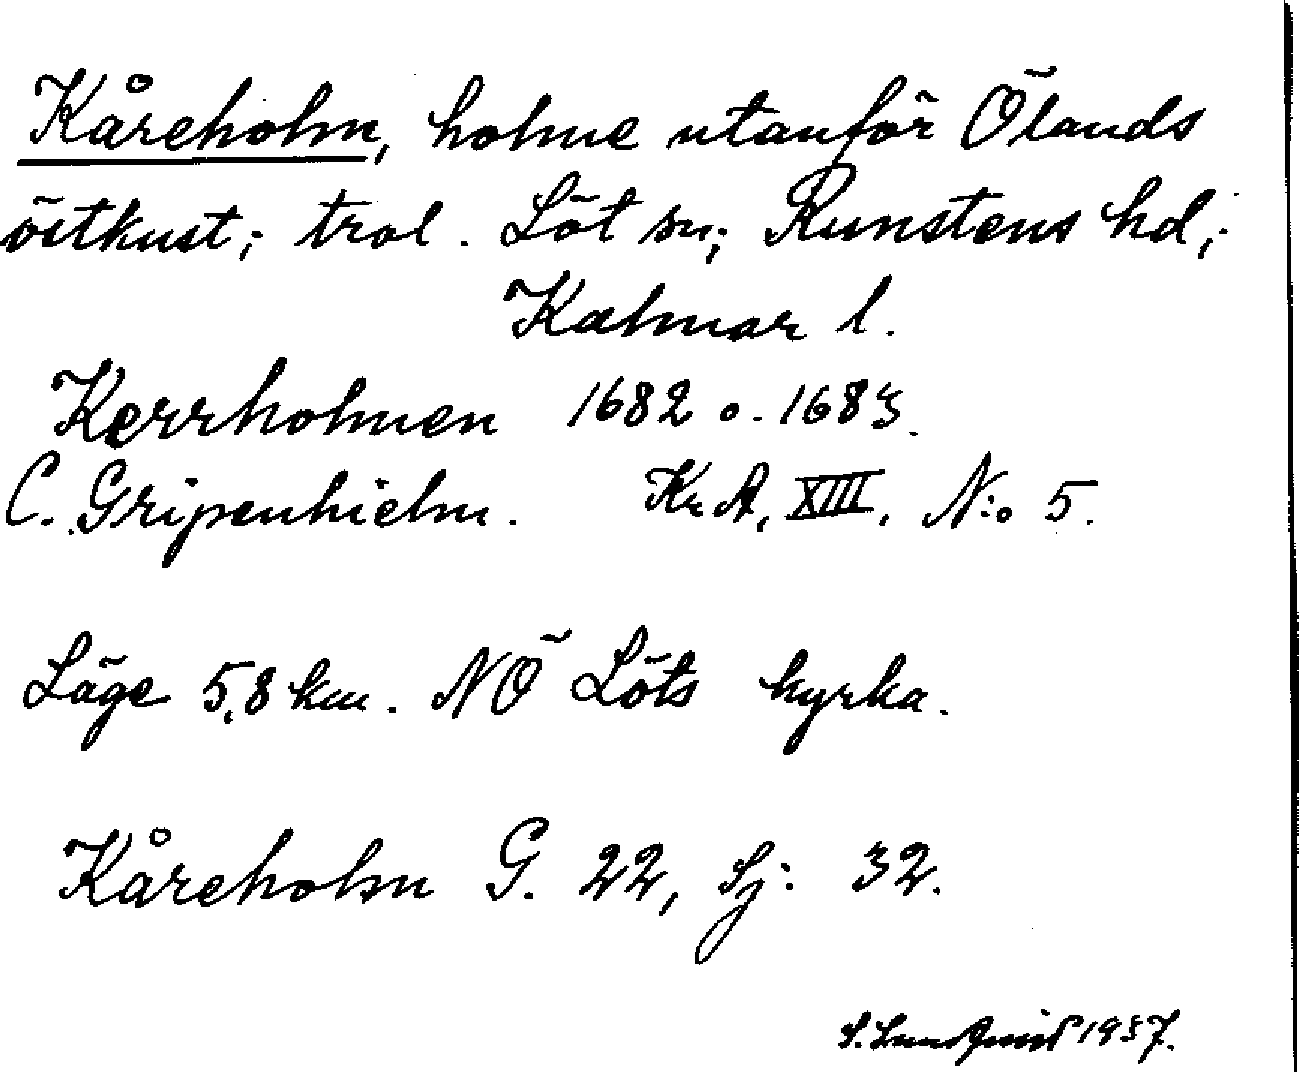 Kåreholm, holme utanför Ölands
östkust; trol. Löt sn; Runstens hd;
Kalmar l.
Kerrholmen 1682 o. 1683.
C. Gripenhielm. Kr A, XIII, N:o 5.
Läge 5,8 km. NÖ Löts kyrka.
Kåreholm G. 22, Sj: 32.
S. Lundquist 1937.